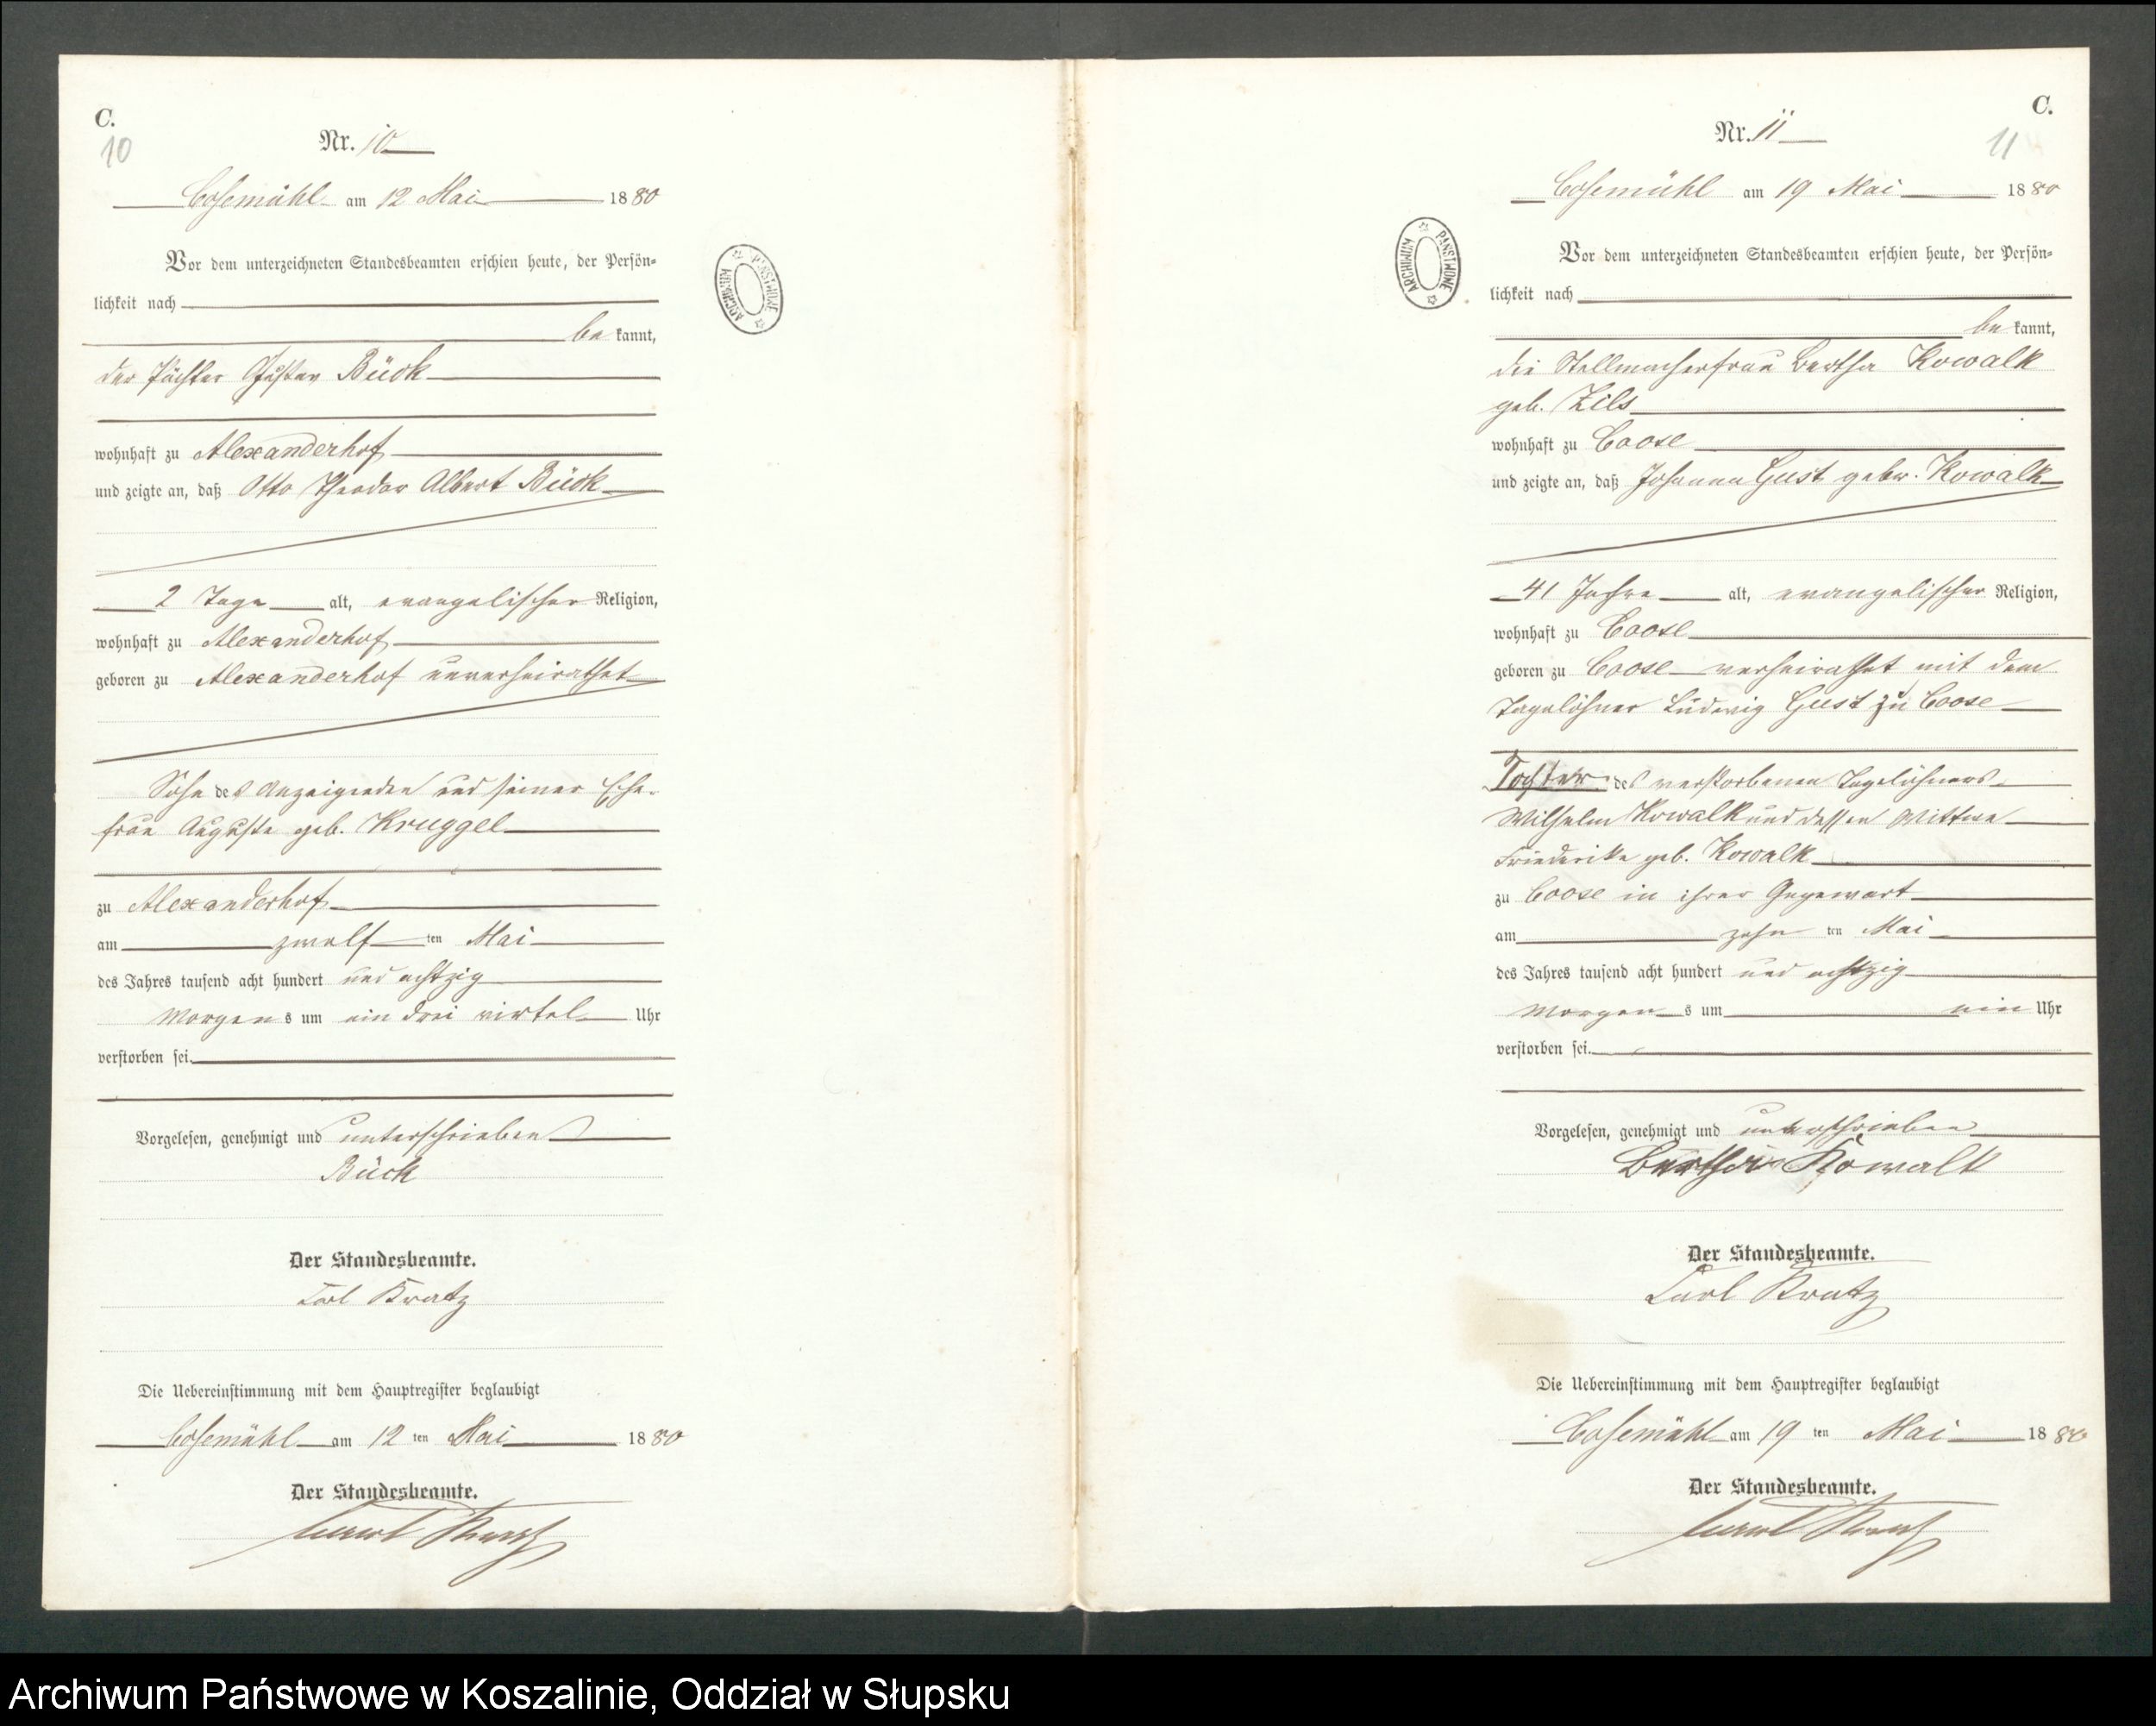 C.
10
Nr. 10
Cosemühl am 12 Mai 1880
Vor dem unterzeichneten Standesbeamten erschien heute, der Persön-
lichkeit nach
be kannt,
der Pächter Gustav Bück
wohnhaft zu Alexanderhof
und zeigte an, daß Otto Theodor Albert Bück
2 Tage alt, evangelischer Religion,
wohnhaft zu Alexanderhof
geboren zu Alexanderhof unverheirathet
Sohn des Anzeigenden und seiner Ehe-
frau Auguste geb. Kruggel
zu Alexanderhof
am zwölf ten Mai
des Jahres tausend acht hundert und achtzig
Morgens um ein drei virtel Uhr
verstorben sei.
Vorgelesen, genehmigt und unterschrieben
Bück
Der Standesbeamte.
Carl Kratz
Die Uebereinstimmung mit dem Hauptregister beglaubigt
Cosemühl am 12 ten Mai 1880
Der Standesbeamte.
Carl Kratz
ARCHIWUM PAŃSTWOWE
C.
11
Nr. 11
Cosemühl am 19 Mai 1880
Vor dem unterzeichneten Standesbeamten erschien heute, der Persön-
lichkeit nach
be kannt,
die Stellmacherfrau Bertha Kowalk
geb. Zils
wohnhaft zu Coose
und zeigte an, daß Johanna Gust gebor. Kowalk
41 Jahre alt, evangelischer Religion,
wohnhaft zu Coose
geboren zu Coose verheirathet mit dem
Tagelöhner Ludwig Gust zu Coose
Tochter des verstorbenen Tagelöhners
Wilhelm Kowalk und dessen Wittwe
Friederike geb. Kowalk
zu Coose in ihrer Gegenwart
am zehn ten Mai
des Jahres tausend acht hundert und achtzig
Morgens um ein Uhr
verstorben sei.
Vorgelesen, genehmigt und unterschrieben
Bertha Kowalk
Der Standesbeamte.
Carl Kratz
Die Uebereinstimmung mit dem Hauptregister beglaubigt
Cosemühl am 19 ten Mai 1880
Der Standesbeamte.
Carl Kratz
ARCHIWUM PAŃSTWOWE
Archiwum Państwowe w Koszalinie, Oddział w Słupsku